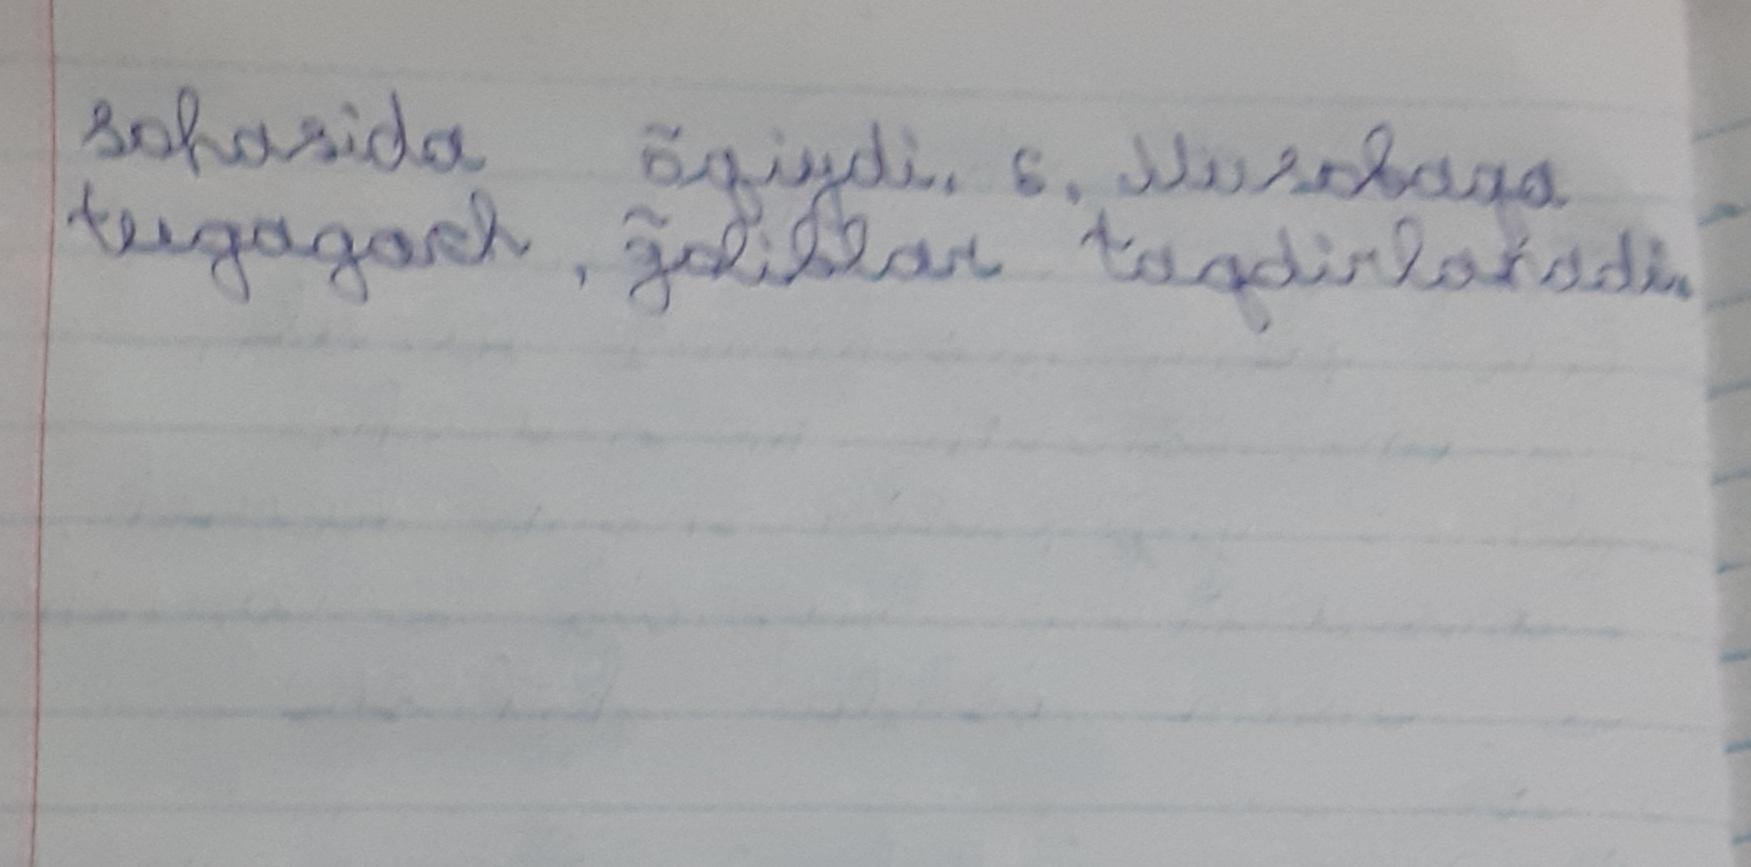 sohasida õqiydi. 6. Musobaqa
tugagach, g̃oliblar taqdirlanadi.